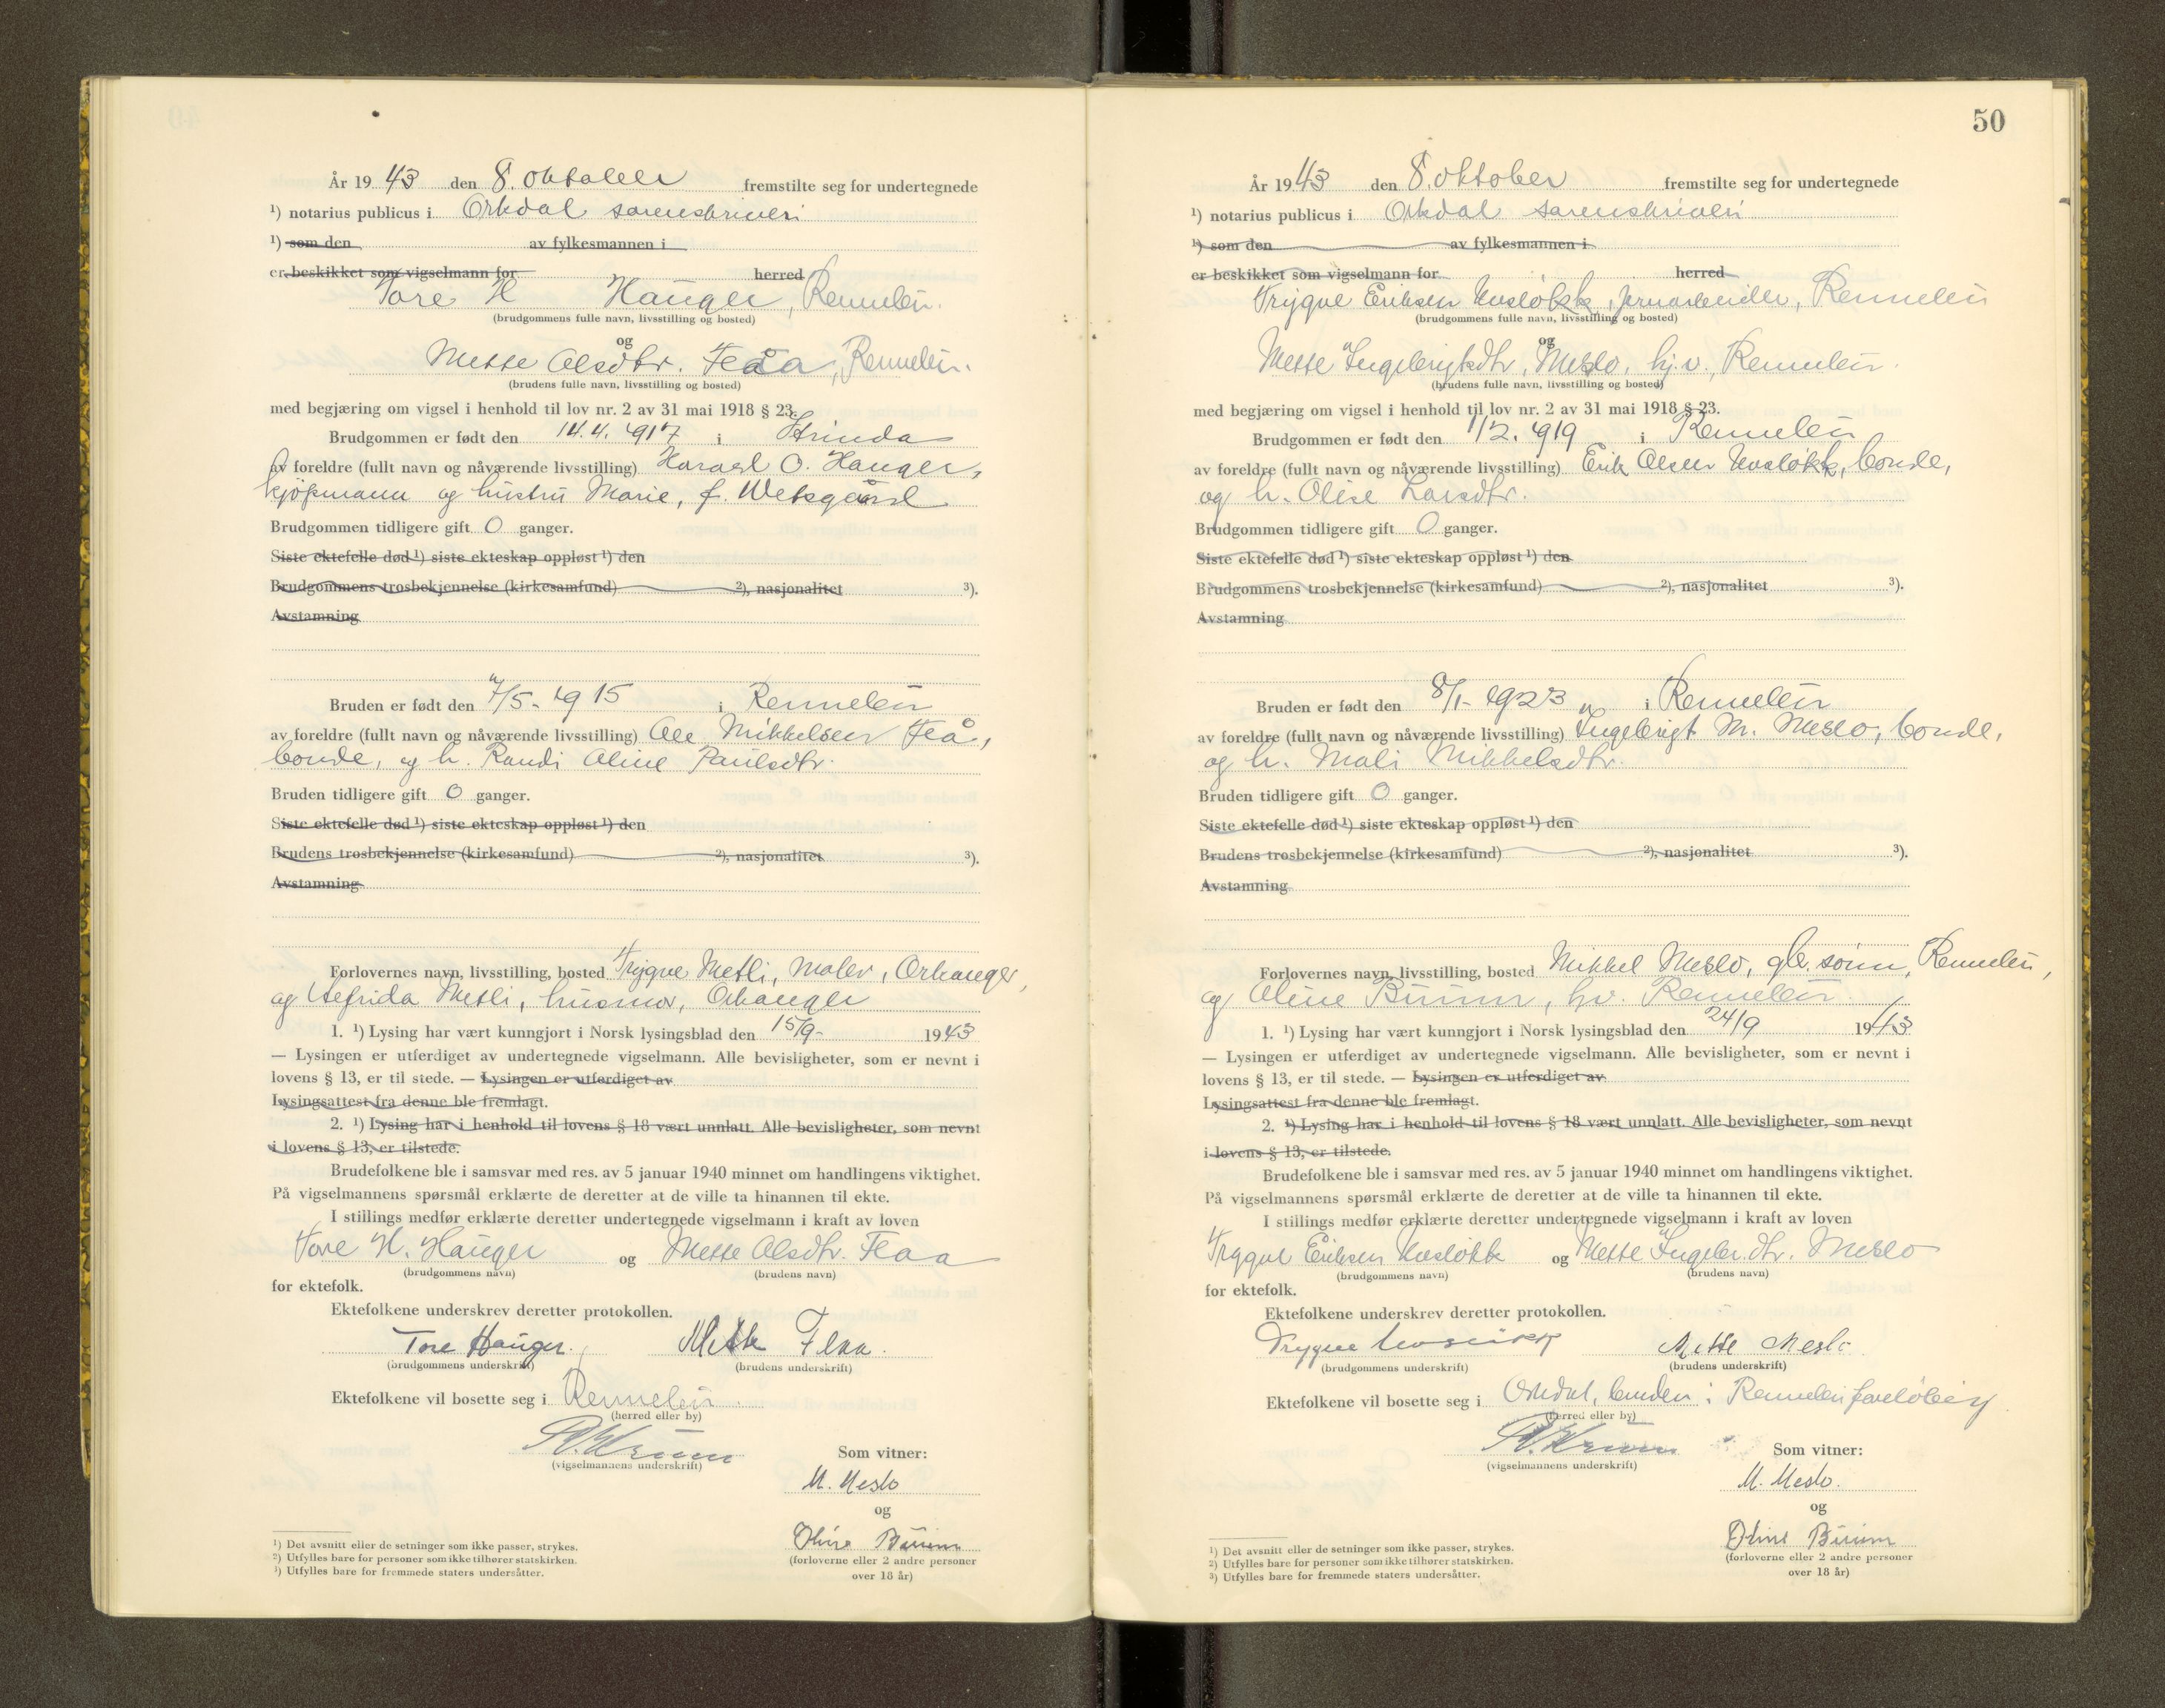 År 1943 den 8. oktober fremstilte seg for undertegnede
¹) notarius publicus i Orkdal sorenskriveri
¹) som den av fylkesmannen i
er beskikket som vigselmann for herred
Tore H Hauger, Rennebu.
(brudgommens fulle navn, livsstilling og bosted)
og
Mette Olsdtr. Flaa, Rennebu.
(brudens fulle navn, livsstilling og bosted)
med begjæring om vigsel i henhold til lov nr. 2 av 31 mai 1918 § 23.
Brudgommen er født den 14.4.1917 i Strinda
av foreldre (fullt navn og nåværende livsstilling) Harald O. Hauger,
kjøpmann og hustru Marie, f.
Brudgommen tidligere gift 0 ganger.
Siste ektefelle død ¹) siste ekteskap oppløst ¹) den
Brudgommens trosbekjennelse (kirkesamfund) ²), nasjonalitet ³).
Avstamning
Bruden er født den 7/5- 1915 i Rennebu
av foreldre (fullt navn og nåværende livsstilling) Ole Mikkelsen Flå,
bonde, og h. Randi Oline Paulsdtr.
Bruden tidligere gift 0 ganger.
Siste ektefelle død ¹) siste ekteskap oppløst ¹) den
Brudens trosbekjennelse (kirkesamfund) ²), nasjonalitet ³).
Avstamning
Forlovernes navn, livsstilling, bosted Trygve Metli, maler, Orkanger,
og Metli, husmor, Orkanger
1. ¹) Lysing har vært kunngjort i Norsk lysingsblad den 15/9- 1943
— Lysingen er utferdiget av undertegnede vigselmann. Alle bevisligheter, som er nevnt i
lovens § 13, er til stede. — Lysingen er utferdiget av
Lysingsattest fra denne ble fremlagt.
2. ¹) Lysing har i henhold til lovens § 18 vært unnlatt. Alle bevisligheter, som nevnt
i lovens § 13, er tilstede.
Brudefolkene ble i samsvar med res. av 5 januar 1940 minnet om handlingens viktighet.
På vigselmannens spørsmål erklærte de deretter at de ville ta hinannen til ekte.
I stillings medfør erklærte deretter undertegnede vigselmann i kraft av loven
Tore H. Hauger og Mette Olsdtr. Flaa
(brudgommens navn) (brudens navn)
for ektefolk.
Ektefolkene underskrev deretter protokollen.
Tore Hauger. Mette Flaa.
(brudgommens underskrift) (brudens underskrift)
Ektefolkene vil bosette seg i Rennebu.
(herred eller by)
(vigselmannens underskrift)
Som vitner:
M. Meslo
og
Oline Buum
(forloverne eller 2 andre personer
over 18 år)
¹) Det avsnitt eller de setninger som ikke passer, strykes.
²) Utfylles bare for personer som ikke tilhører statskirken.
³) Utfylles bare for fremmede staters undersåtter.
50
År 1943 den 8. oktober fremstilte seg for undertegnede
¹) notarius publicus i Orkdal sorenskriveri
¹) som den av fylkesmannen i
er beskikket som vigselmann for herred
Trygve Eriksen Uvsløkk, jernarbeider, Rennebu
(brudgommens fulle navn, livsstilling og bosted)
og
Mette Ingebrigtsdtr. Meslo, hj.v., Rennebu.
(brudens fulle navn, livsstilling og bosted)
med begjæring om vigsel i henhold til lov nr. 2 av 31 mai 1918 § 23.
Brudgommen er født den 1/2. 1919 i Rennebu
av foreldre (fullt navn og nåværende livsstilling) Erik Olsen Uvsløkk, bonde,
og h. Olise Larsdtr.
Brudgommen tidligere gift 0 ganger.
Siste ektefelle død ¹) siste ekteskap oppløst ¹) den
Brudgommens trosbekjennelse (kirkesamfund) ²), nasjonalitet ³).
Avstamning
Bruden er født den 8/1- 1923 i Rennebu
av foreldre (fullt navn og nåværende livsstilling) Ingebrigt M. Meslo, bonde,
og h. Mali Mikkelsdtr.
Bruden tidligere gift 0 ganger.
Siste ektefelle død ¹) siste ekteskap oppløst ¹) den
Brudens trosbekjennelse (kirkesamfund) ²), nasjonalitet ³).
Avstamning
Forlovernes navn, livsstilling, bosted Mikkel Meslo, gbr. sønn, Rennebu,
og Oline Buum, hv. Rennebu.
1. ¹) Lysing har vært kunngjort i Norsk lysingsblad den 24/9 1943
— Lysingen er utferdiget av undertegnede vigselmann. Alle bevisligheter, som er nevnt i
lovens § 13, er til stede. — Lysingen er utferdiget av
Lysingsattest fra denne ble fremlagt.
2. ¹) Lysing har i henhold til lovens § 18 vært unnlatt. Alle bevisligheter, som nevnt
i lovens § 13, er tilstede.
Brudefolkene ble i samsvar med res. av 5 januar 1940 minnet om handlingens viktighet.
På vigselmannens spørsmål erklærte de deretter at de ville ta hinannen til ekte.
I stillings medfør erklærte deretter undertegnede vigselmann i kraft av loven
Trygve Eriksen Uvsløkk og Mette Ingebr.dtr. Meslo
(brudgommens navn) (brudens navn)
for ektefolk.
Ektefolkene underskrev deretter protokollen.
Trygve Uvsløkk Mette Meslo
(brudgommens underskrift) (brudens underskrift)
Ektefolkene vil bosette seg i Orkdal, bruden i Rennebu foreløbig
(herred eller by)
(vigselmannens underskrift)
Som vitner:
M. Meslo.
og
Oline Buum
(forloverne eller 2 andre personer
over 18 år)
¹) Det avsnitt eller de setninger som ikke passer, strykes.
²) Utfylles bare for personer som ikke tilhører statskirken.
³) Utfylles bare for fremmede staters undersåtter.